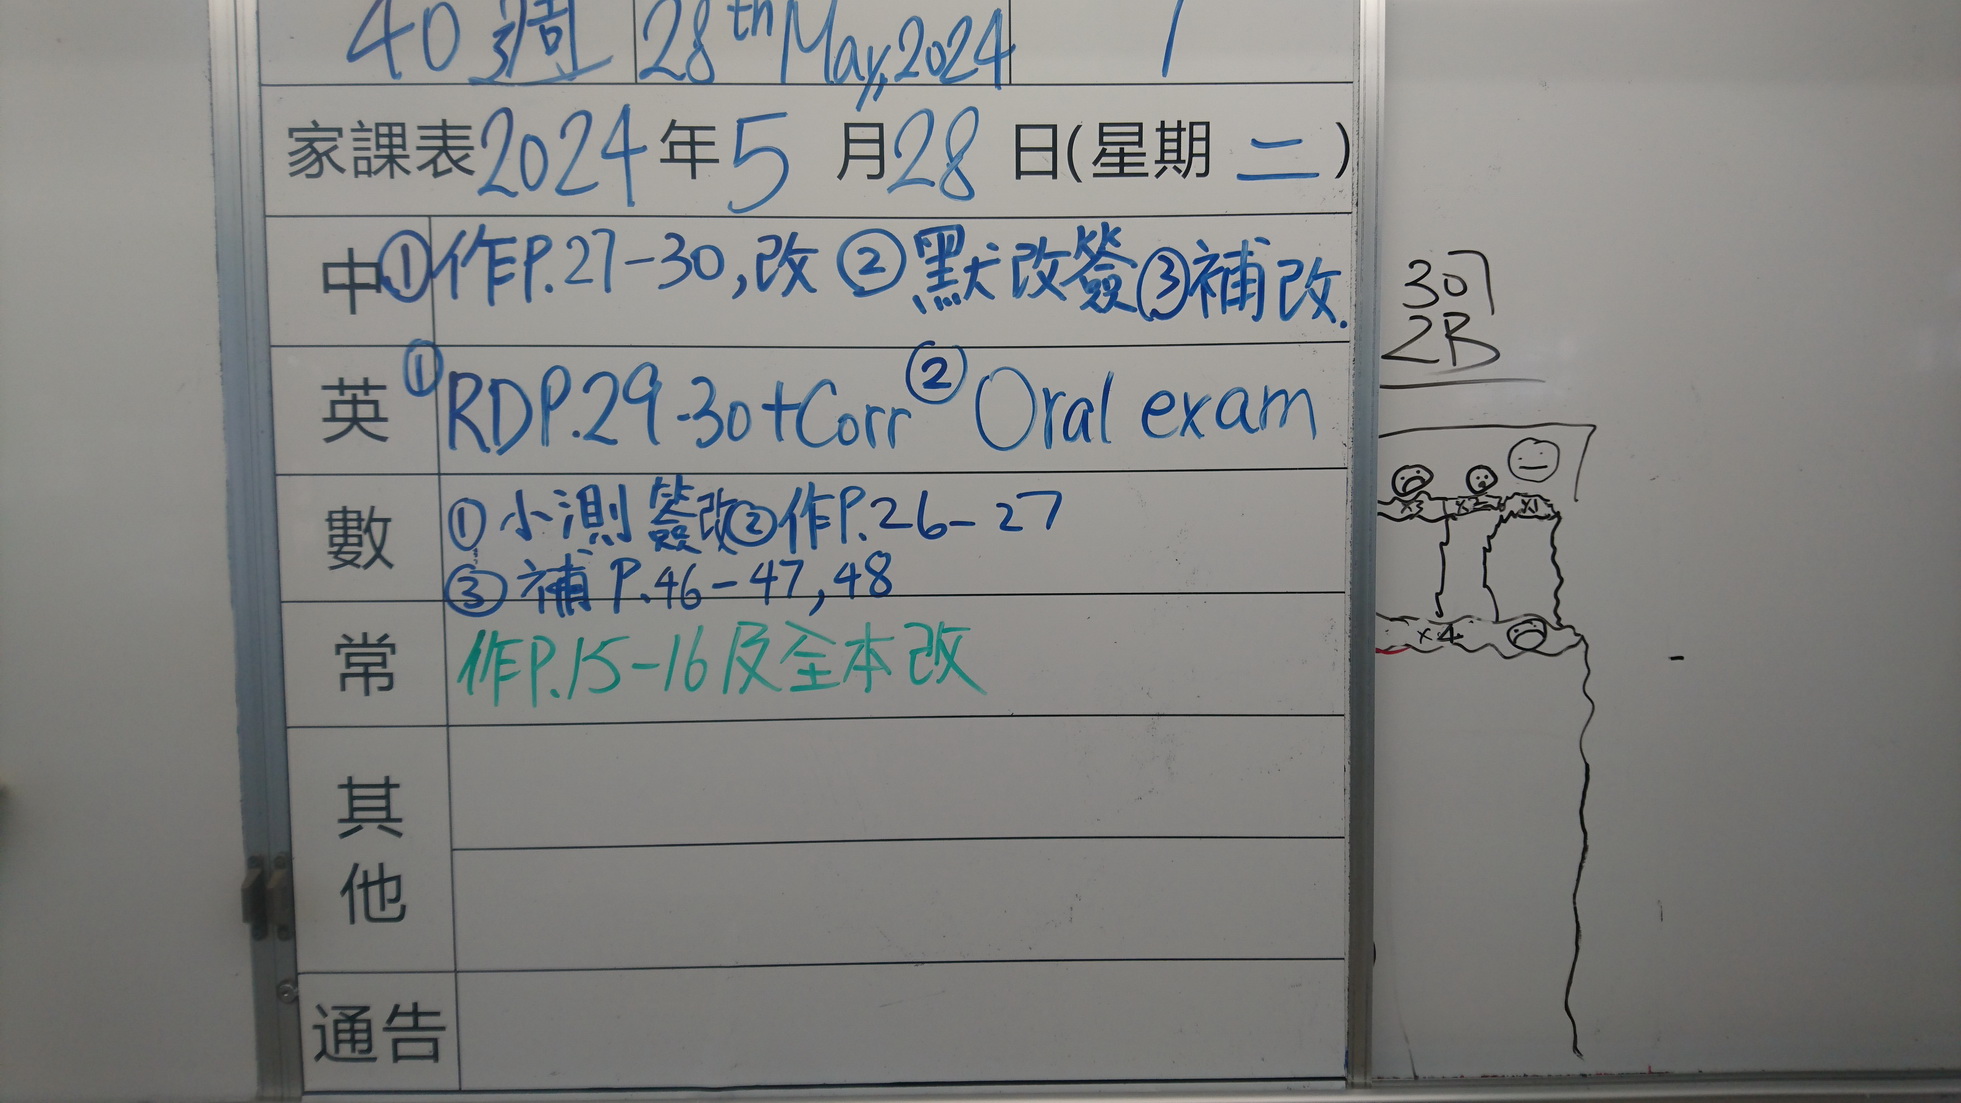 40 週 28th May, 2024 1
家課表 2024 年 5 月 28 日(星期 二)
中 ① 作P.27-30,改 ② 默改簽 ③ 補改.
英 ① RD P.29-30+Corr ② Oral exam
數 ① 小測簽改 ② 作P.26-27
③ 補 P.46-47,48
常 作P.15-16及全本改
其他
通告
307
2B
x3 x2 x1
x4